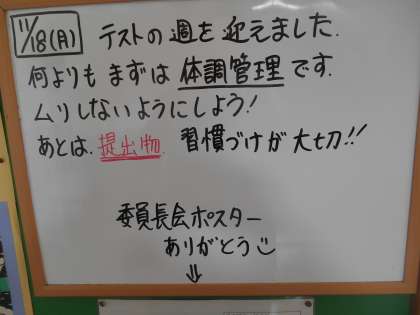 11/18(月) テストの週を迎えました.
何よりもまずは体調管理です.
ムリしないようにしよう!
あとは.提出物.習慣づけが大切!!
委員長会ポスター
ありがとう